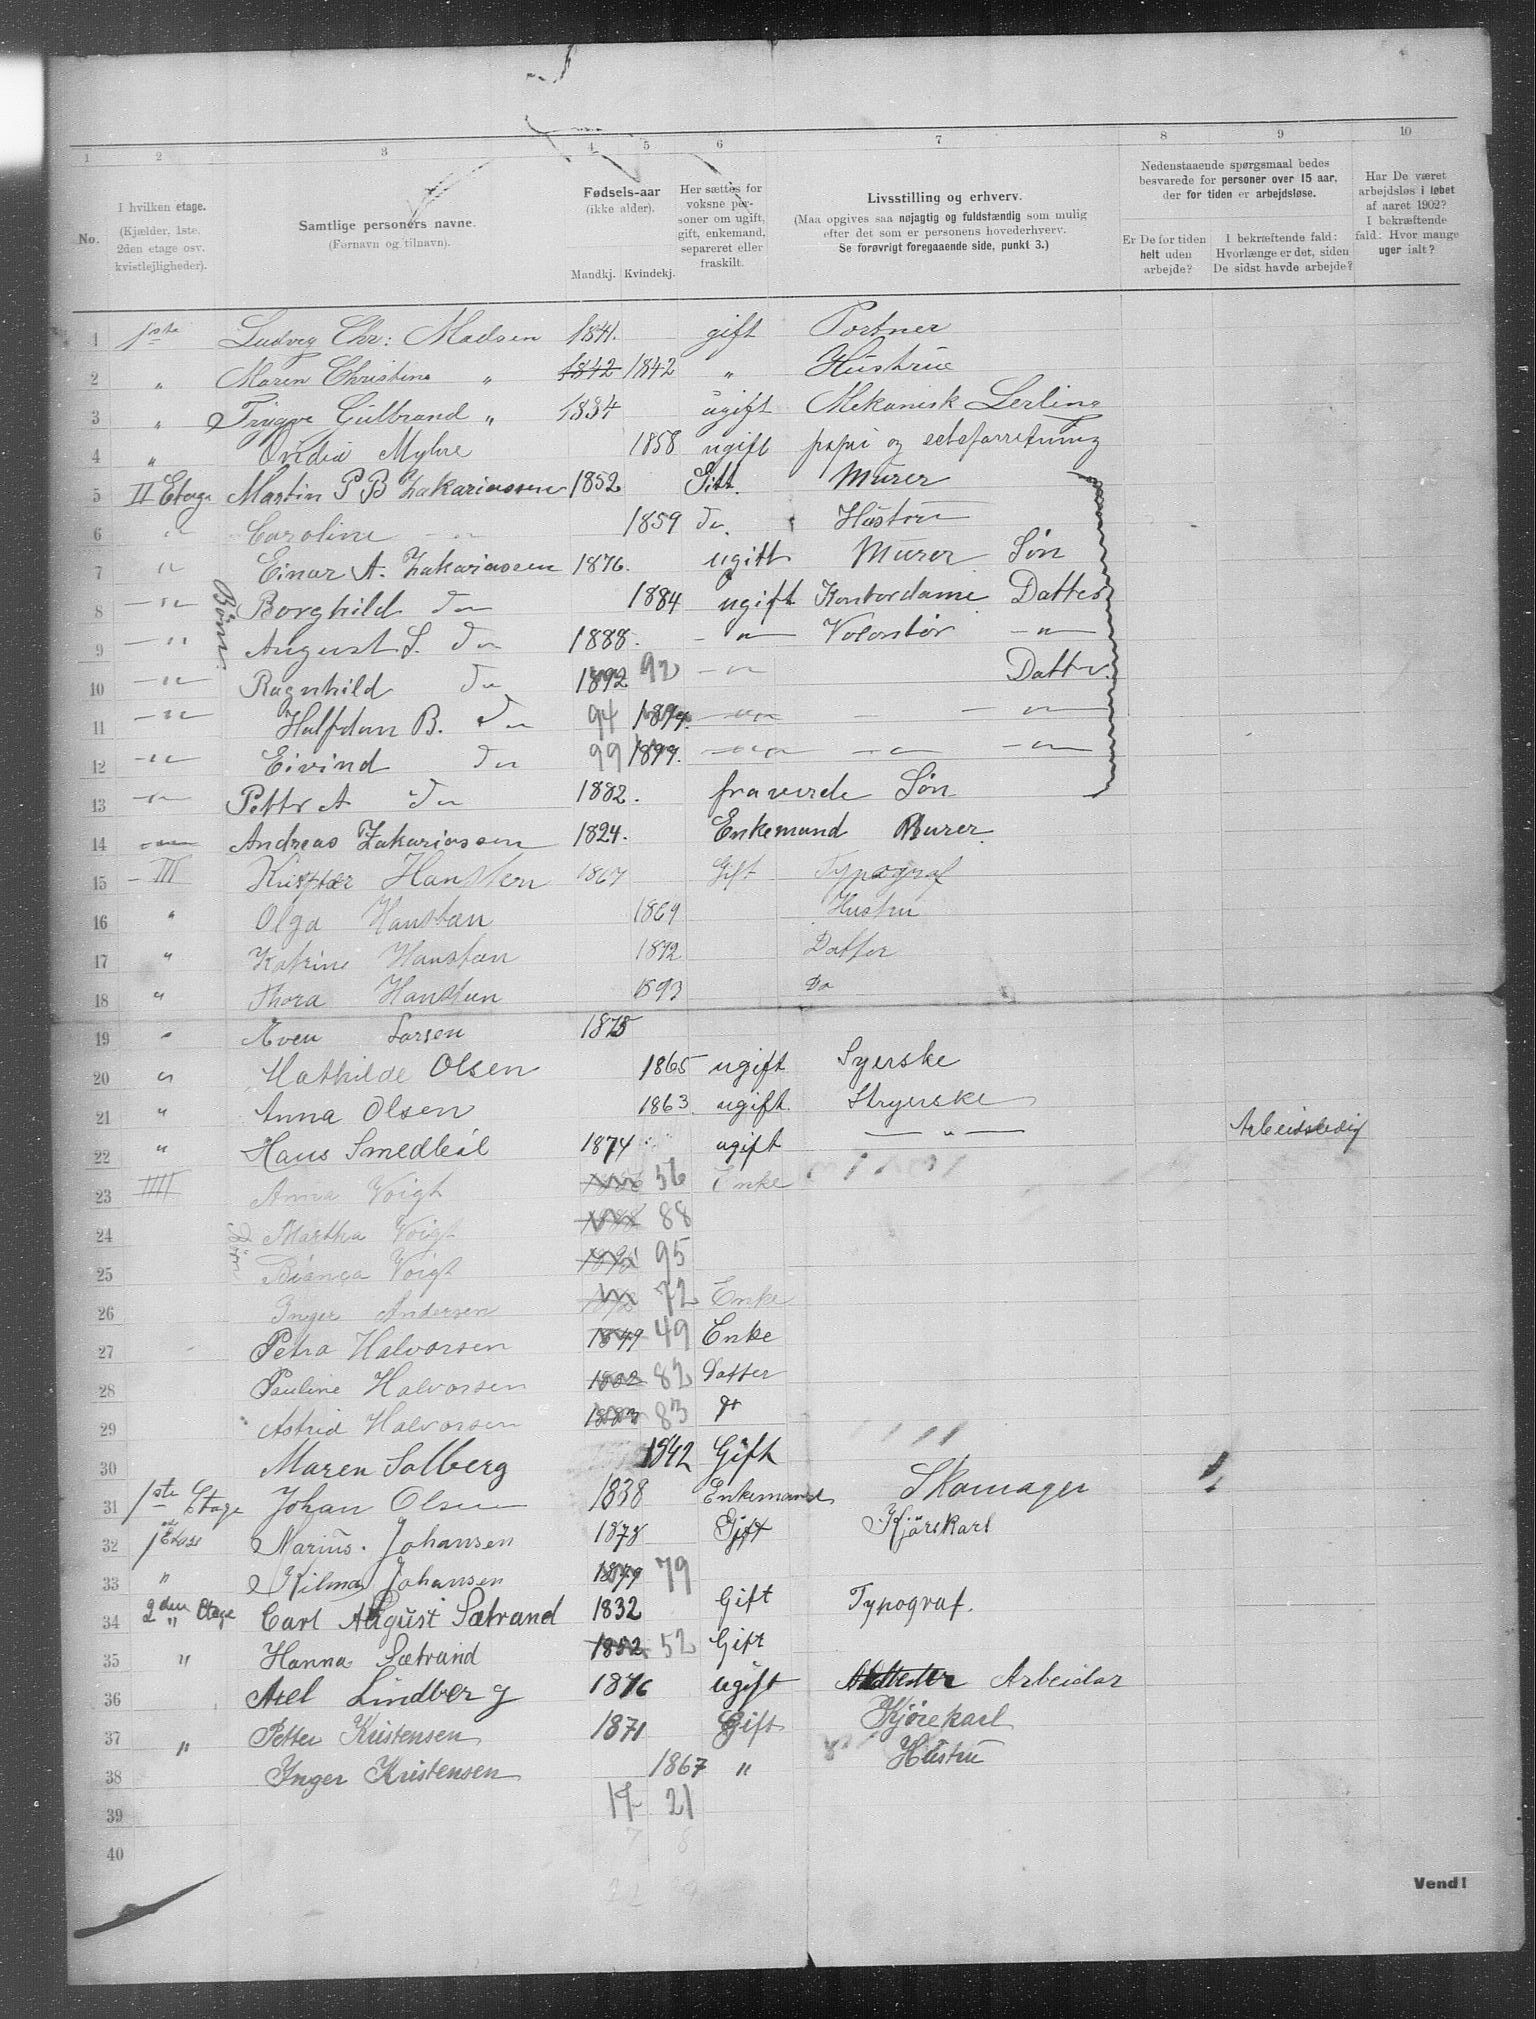 1 2 3 4 5 6 7 8 9 10
No.
I hvilken etage.
(Kjælder, 1ste, 2den etage osv. kvistlejligheder).
Samtlige personers navne.
(Fornavn og tilnavn).
Fødsels-aar
(ikke alder).
Mandkj. Kvindekj.
Her sættes for voksne personer om ugift, gift, enkemand, separeret eller fraskilt.
Livsstilling og erhverv.
(Maa opgives saa nøjagtig og fuldstændig som mulig efter det som er personens hovederhverv.
Se forøvrigt foregaaende side, punkt 3.)
Nedenstaaende spørgsmaal bedes besvarede for personer over 15 aar, der for tiden er arbejdsløse.
Er De for tiden helt uden arbejde?
I bekræftende fald: Hvorlænge er det, siden De sidst havde arbejde?
Har De været arbejdsløs i løbet af aaret 1902? I bekræftende fald: Hvor mange uger ialt?
1 1ste Ludvig Chr: Madsen 1841. gift Portner
2 " Maren Christine " 1842 1842 " Hustrue
3 " Trygve Gulbrand " 1884 ugift Mekanisk Lerling
4 " Ovidia Myhre 1858 ugift papir og
5 II Etage Martin P B Zakariassen 1852 Gift. Murer
6 " Caroline 1859 Do Hustru
7 " Einar A. Zakariassen 1876. ugift Murer Søn
Børn
8 " Borghild Do 1884 ugift Kontordame Datter
9 " August S. Do 1888. " Volontør "
10 " Ragnhild Do 1892 92 " Datter
11 " Halfdan B. Do 94 1894. " "
12 " Eivind Do 99 1899. " " "
13 " Petter A Do 1882. fraverde Søn
14 " Andreas Zakariassen 1824. Enkemand Murer
15 III Hansteen 1867 Gift Typograf
16 " Olga Hansteen 1869 Hustru
17 " Katrine Hansteen 1892 Datter
18 " Thora Hansteen 1893 Do
19 " Even Larsen 1875
20 " Mathilde Olsen 1865 ugift Syerske
21 " Anna Olsen 1863 ugift. Strygerske
22 " Hans 1874 ugift " Arbeidsledig
23 IIII Anna Voigt 56 Enke
Børn
24 Martha Voigt 88
25 Bianca Voigt 95
26 Inger Andersen 72 Enke
27 Petra Halvorsen 1849 49 Enke
28 Pauline Halvorsen 1882 82 Datter
29 Astrid Halvorsen 1883 83
30 Maren Solberg 1842 Gift
31 1ste Etage Johan Olsen 1838 Enkemand Skomager
32 Marius. Johansen 1878 Gift Kjørskarl
33 " Hilma Johansen 1879 79
34 2den Etage " Carl August Sætrand 1832 Gift Typograf.
35 " Hanna Sætrand 1852 52 Gift
36 Axel Lindberg 1876 ugift Arbeidar
37 " Petter Kristensen 1871 Gift Kjørekarl
38 Inger Kristensen 1867 " Hustru
39 17 21
40
Vend!